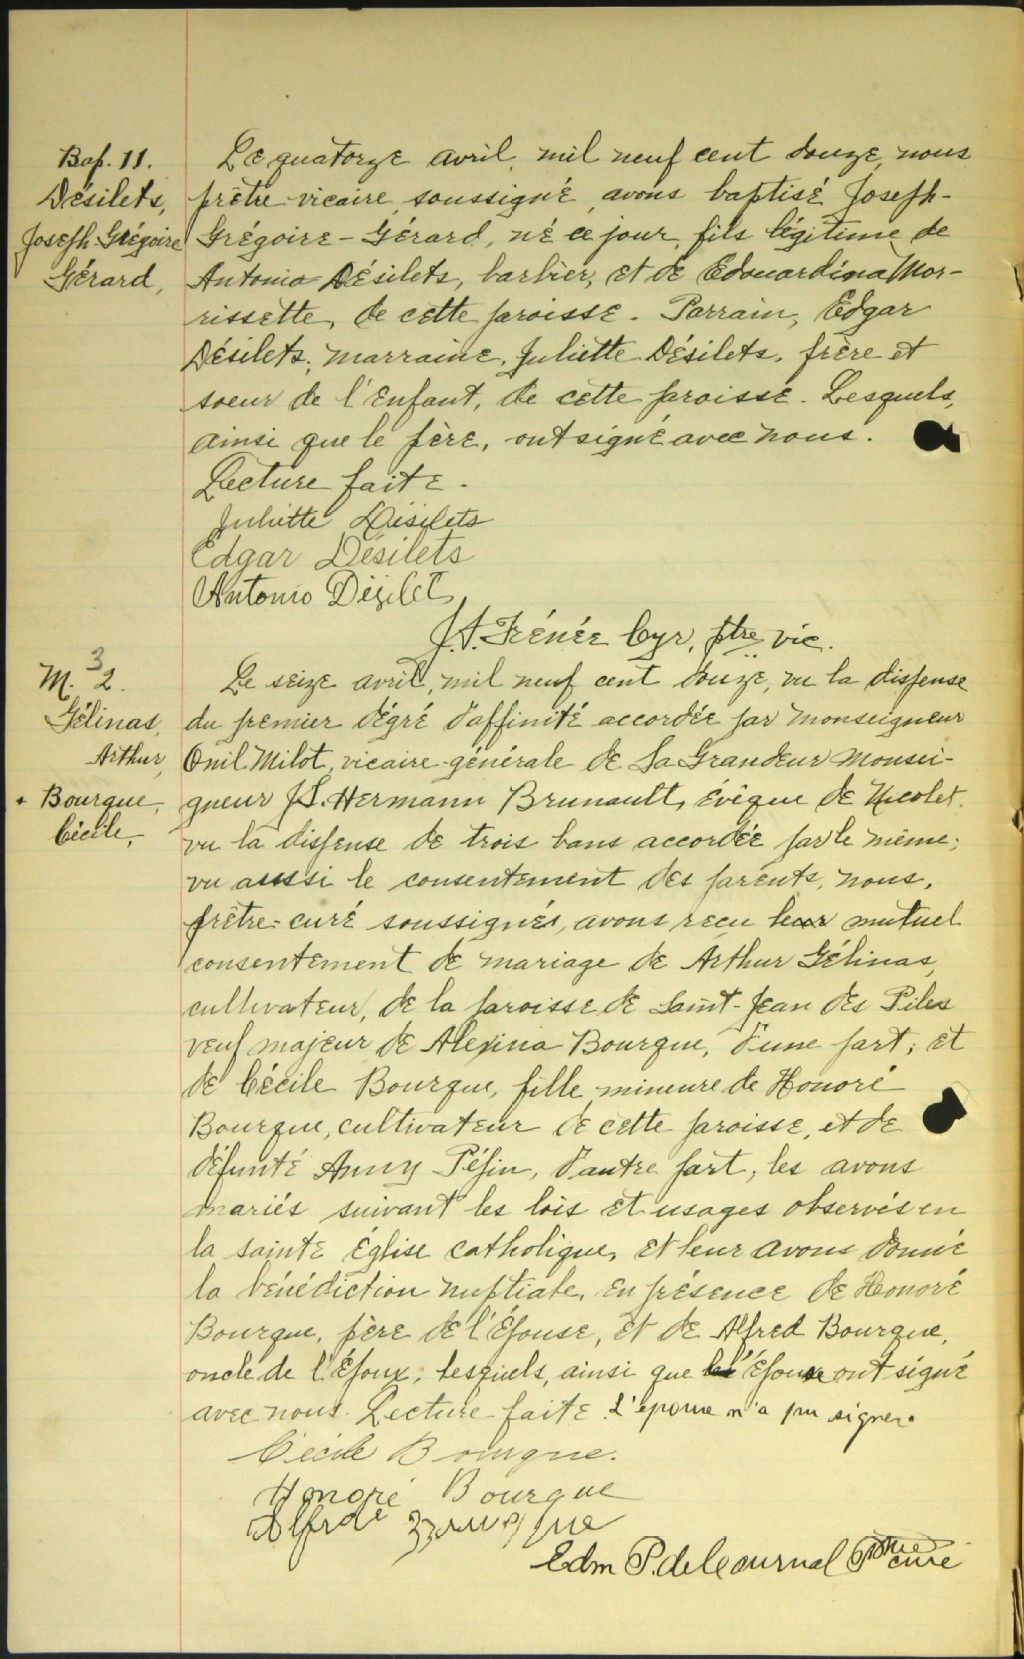 Bap. 11.
Désilets,
Joseph Grégoire
Gérard,
Le quatorze avril, mil neuf cent douze, nous
prêtre vicaire, soussigné, avons baptisé Joseph-
Grégoire-Gérard, né ce jour, fils légitime de
Antonio Désilets, barbier, et de Edouardina Mor-
rissette, de cette paroisse. Parrain, Edgar
Désilets; marraine, Juliette Désilets, frère et
soeur de l'Enfant, de cette paroisse. Lesquels,
ainsi que le père, ont signé avec nous.
Lecture faite.
Juliette Désilets
Edgar Désilets
Antonio Dézilet
J. A. Frénée Cyr, ptre vic.
M. 2.
3
Gélinas,
Arthur,
+ Bourque,
Cécile,
Le seize avril, mil neuf cent douze, vu la dispense
du premier dégré d'affinité accordée par Monseigneur
Onil Milot, vicaire-générale de Sa Grandeur Monsei-
gneur J.S. Hermann Brunault, évêque de Nicolet,
vu la dispense de trois bans accordée par le même;
vu aussi le consentement des parents, nous,
prêtre-curé soussignés, avons reçu leur mutuel
consentement de mariage de Arthur Gélinas,
cultivateur, de la paroisse de Saint-Jean des Piles
veuf majeur de Alexina Bourque, d'une part; et
de Cécile Bourque, fille mineure de Honoré
Bourque, cultivateur de cette paroisse, et de
défunte Anny Pépin, d'autre part; les avons
mariés suivant les lois et usages observés en
la sainte Église catholique, et leur avons donné
la bénédiction nuptiale, en présence de Honoré
Bourque, père de l'Épouse, et de Alfred Bourque,
oncle de l'Époux; lesquels, ainsi que l'épouse ont signé
avec nous. Lecture faite. L'époux n'a pu signer.
Cécile Bourque.
Honoré Bourque
Alfred Bourque
Edm P. de Courval Ptre curé